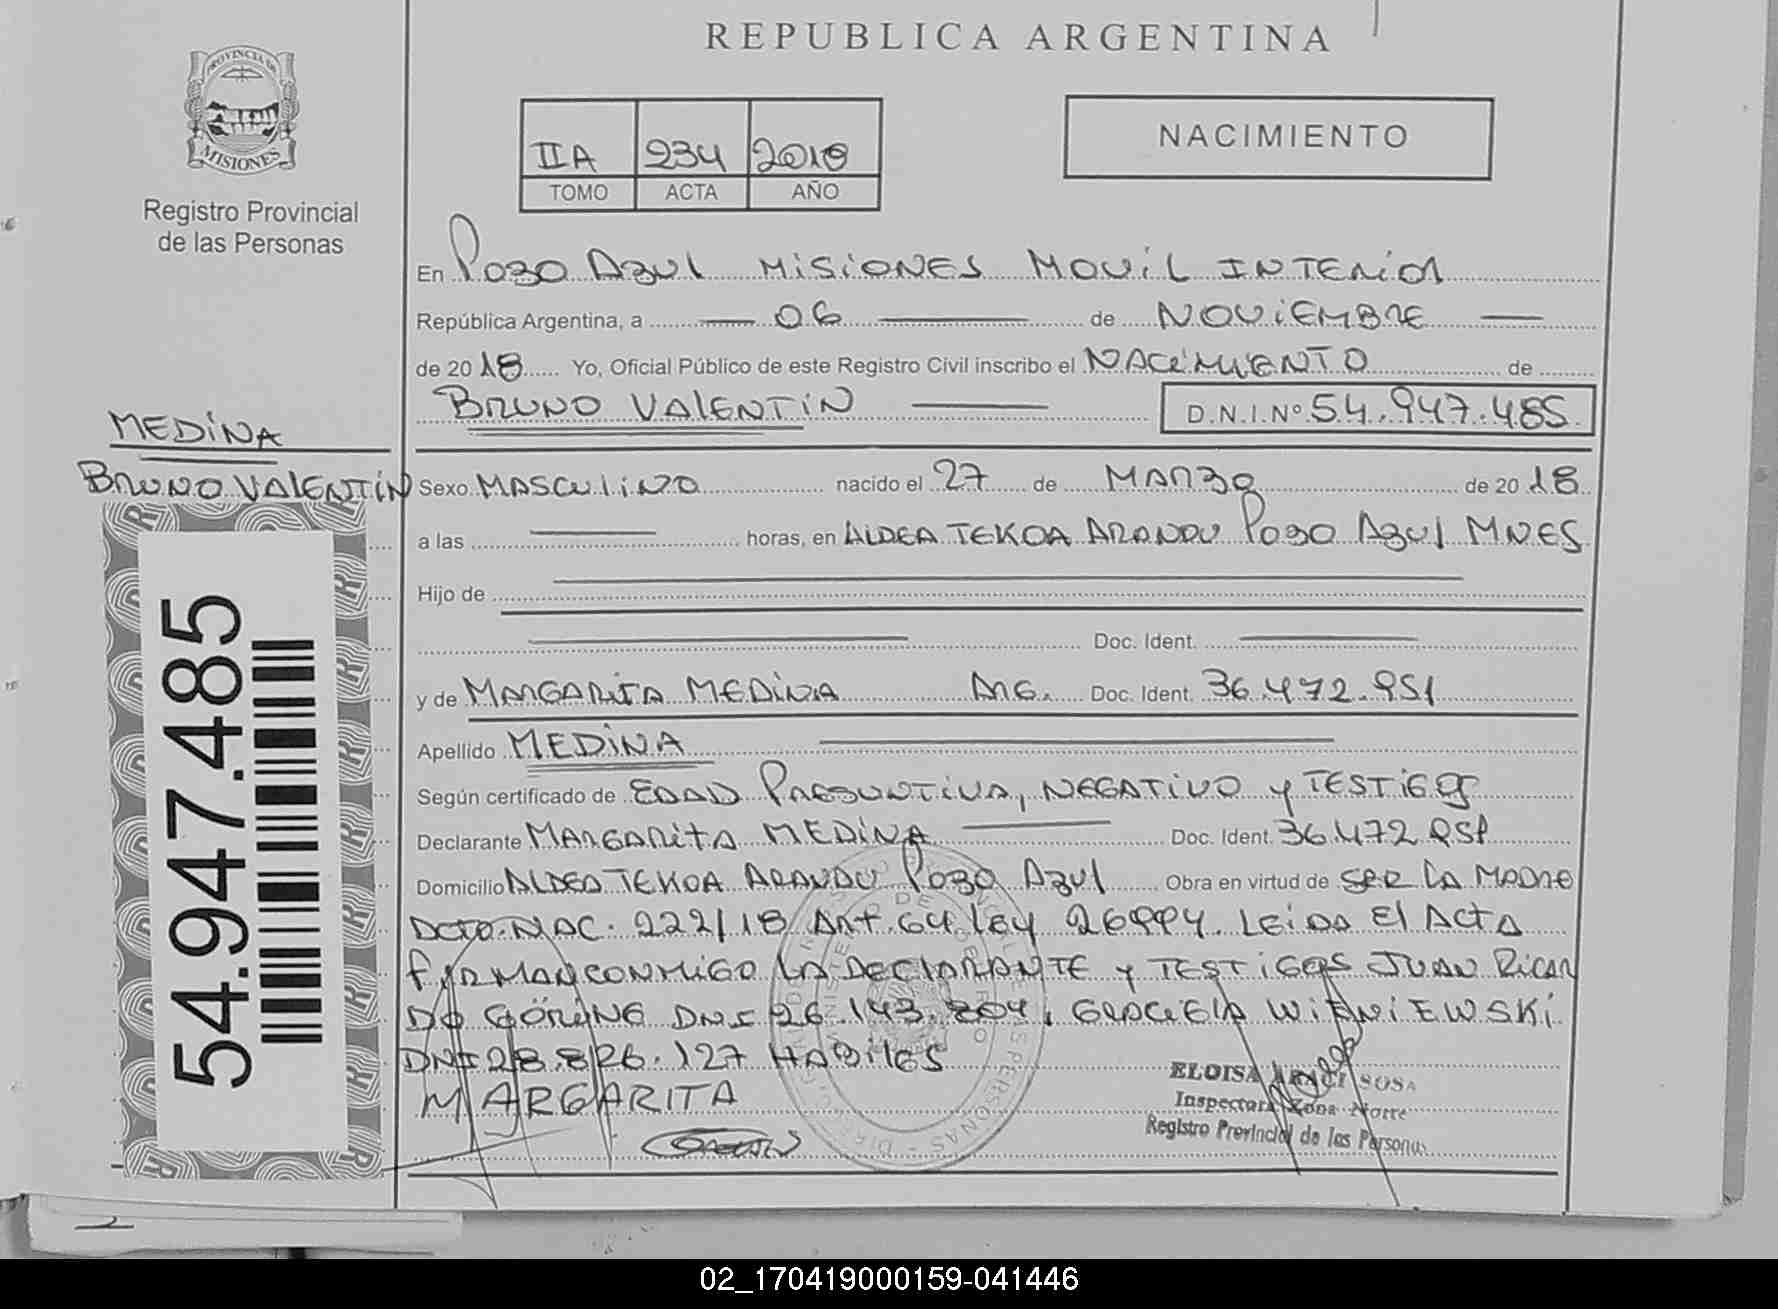 REPUBLICA ARGENTINA
PROVINCIA DE
MISIONES
Registro Provincial
de las Personas
IIA 234 2018
TOMO ACTA AÑO
NACIMIENTO
En Pozo Azul MISIONES MOVIL INTERIOR
República Argentina, a 06 de NOVIEMBRE
de 2018 Yo, Oficial Público de este Registro Civil inscribo el NACIMIENTO de
BRUNO VALENTIN D.N.I.Nº 54.947.485
MEDINA
BRUNO VALENTIN
Sexo MASCULINO nacido el 27 de MARZO de 2018
a las horas, en ALDEA TEKOA ARANDU Pozo Azul MNES
Hijo de
Doc. Ident.
y de MARGARITA MEDINA ARG. Doc. Ident. 36.472.951
Apellido MEDINA
Según certificado de EDAD PRESUNTIVA, NEGATIVO y TESTIGOS
Declarante MARGARITA MEDINA Doc. Ident. 36.472.951
Domicilio ALDEA TEKOA ARANDU Pozo Azul Obra en virtud de SER LA MADRE
DCTO. NAC. 222/18 Art. 64 ley 26994. LEIDA El ACTA
FIRMAN CONMIGO LA DECLARANTE y TESTIGOS JUAN RICAR
DO GÖRING DNI 26.143.804, GRACIELA WIENIEWSKI
DNI 28.826.127 HABILES
MARGARITA
ELOISA ARACI SOSA
Inspectora Zona Norte
Registro Provincial de las Personas
54.947.485
02_170419000159-041446